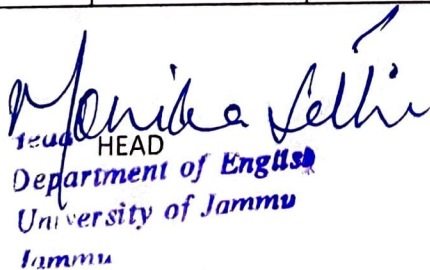 Monika Sethi
Head HEAD
Department of English
University of Jammu
Jammu